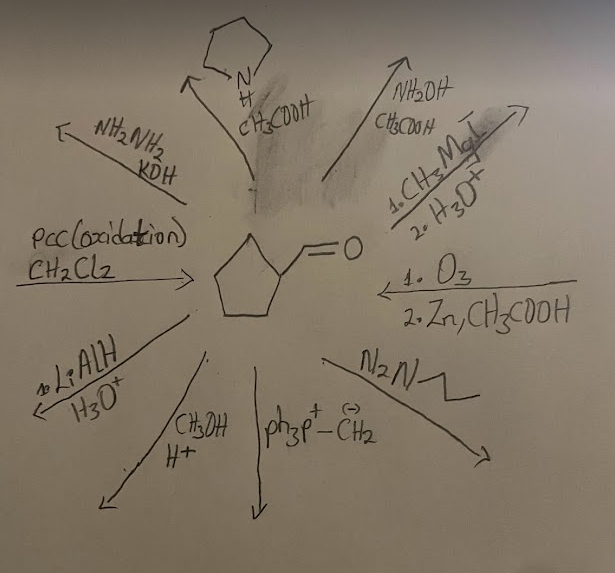 N
H
CH3COOH
NH2OH
CH3COOH
NH2NH2
KOH
1. CH3MgI
2. H3O+
PCC (oxidation)
CH2Cl2
O
1. O3
2. Zn, CH3COOH
1. LiAlH
H3O+
CH3OH
H+
ph3p+-CH2
(-)
N2N